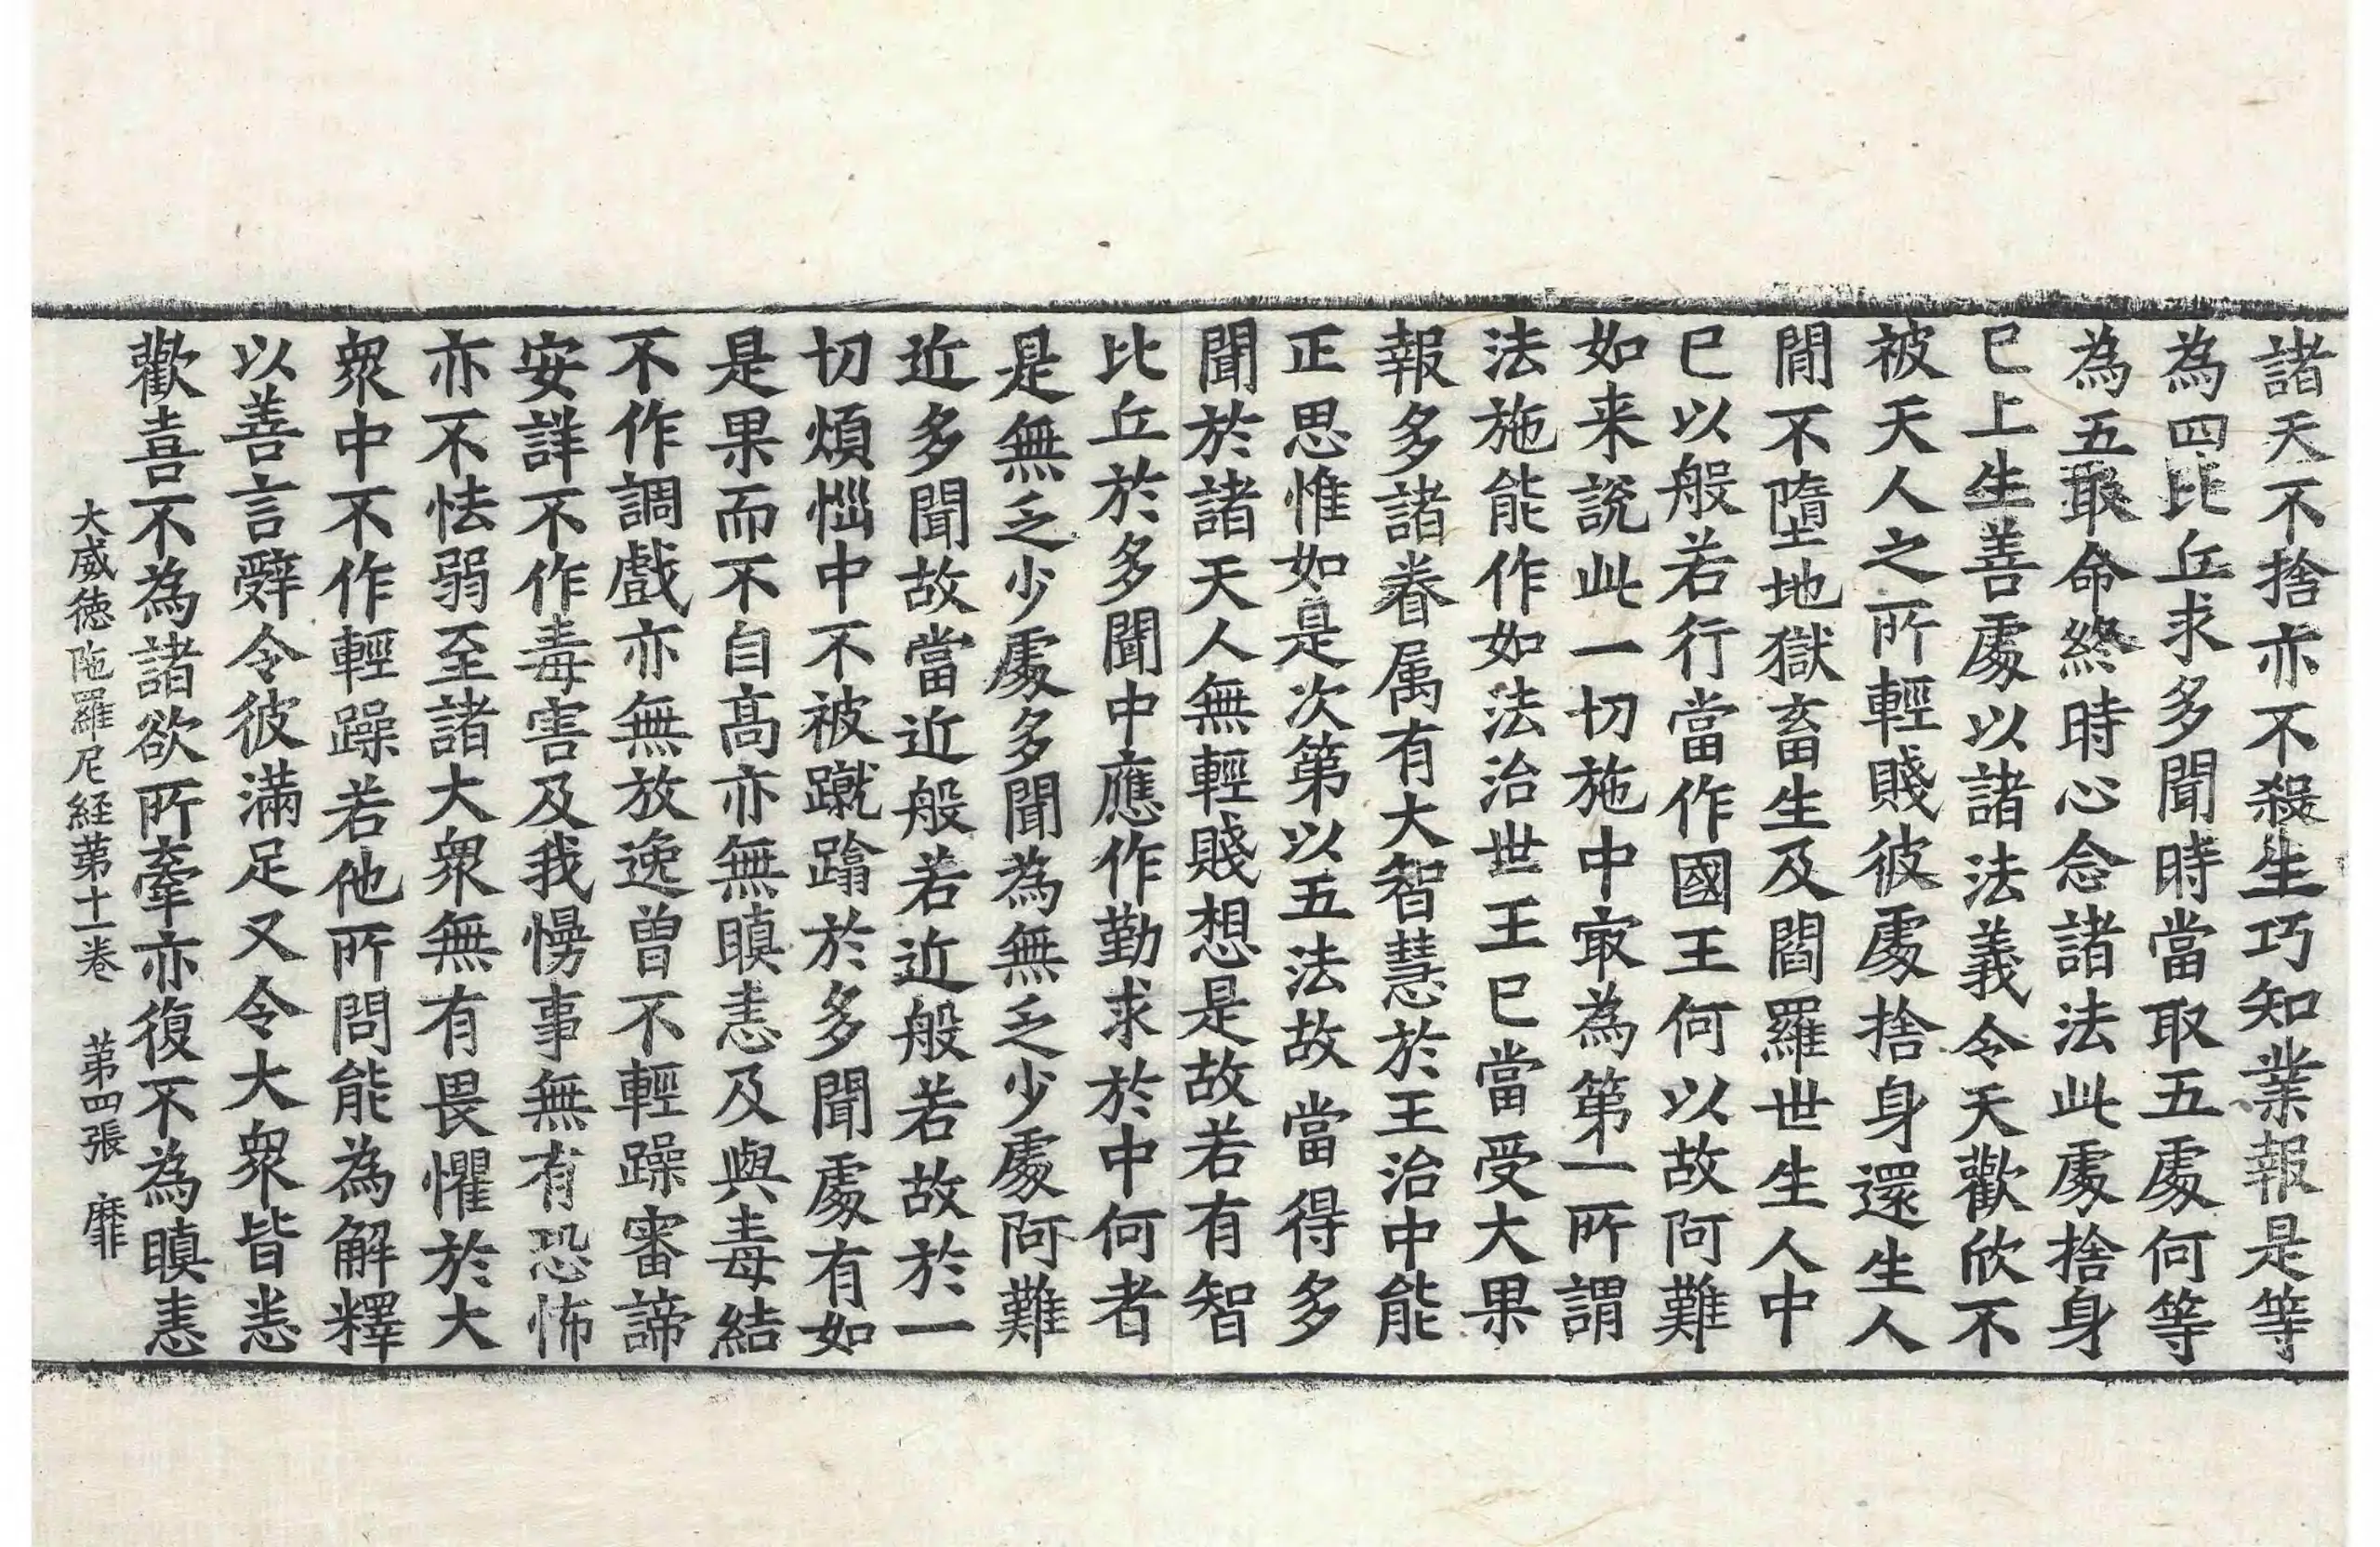 諸天不捨亦不殺生巧知業報是等
為四比丘求多聞時當取五處何等
為五取命終時心念諸法此處捨身
已上生善處以諸法義令天歡欣不
被天人之所輕賤彼處捨身還生人
閒不墮地獄畜生及閻羅世生人中
已以般若行當作國王何以故阿難
如来說此一切施中㝡為第一所謂
法施能作如法治世王已當受大果
報多諸眷属有大智慧於王治中能
正思惟如是次第以五法故當得多
聞於諸天人無輕賤想是故若有智
比丘於多聞中應作勤求於中何者
是無乏少處多聞為無乏少處阿難
近多聞故當近般若近般若故於一
切煩惱中不被蹴蹹於多聞處有如
是果而不自髙亦無瞋恚及與毒結
不作調戲亦無放逸曾不輕躁審諦
安詳不作毒害及我慢事無有恐怖
亦不怯弱至諸大衆無有畏懼於大
衆中不作輕躁若他所問能為解釋
以善言辭令彼滿足又令大衆皆悉
歡喜不為諸欲所牽亦復不為瞋恚
大威徳陁羅尼経苐十一卷 苐四張 靡